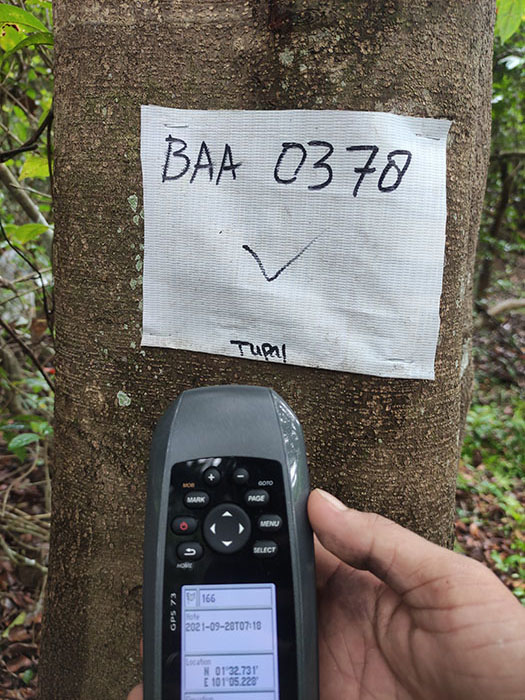 BAA 0378
TUPAI
MOB
GOTO
MARK
+
-
PAGE
MENU
HOME
SELECT
GPS 73
166
Note
2021-09-28T07:18
Location
N 01°32.731'
E 101°05.228'
Elevation